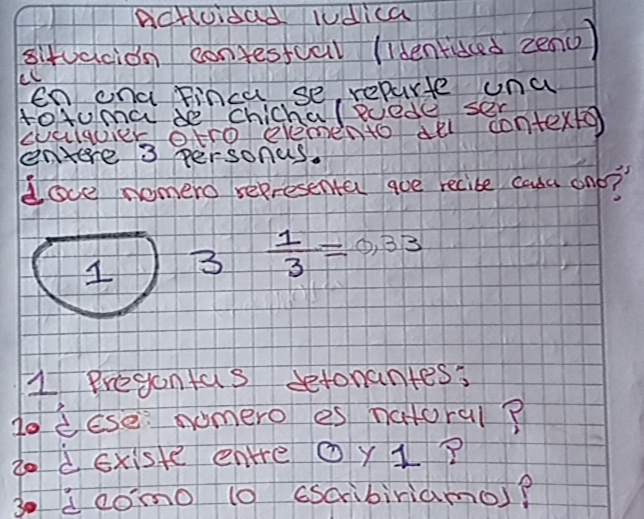 Actividad ludica
situación contestual (Identidad zenú)
"
En una Finca se reparte una
totuma de chicha (puede ser
cualquier otro elemento del contexto)
entere 3 personas.
¿Que nomero representa que recibe cada uno?"
1 3 1/3 = 0,33
1 Pregontas detonantes:
1o ¿Ese nómero es natoral?
2o ¿Existe entre 0 y 1?
3o ¿cómo lo escribiriamos?